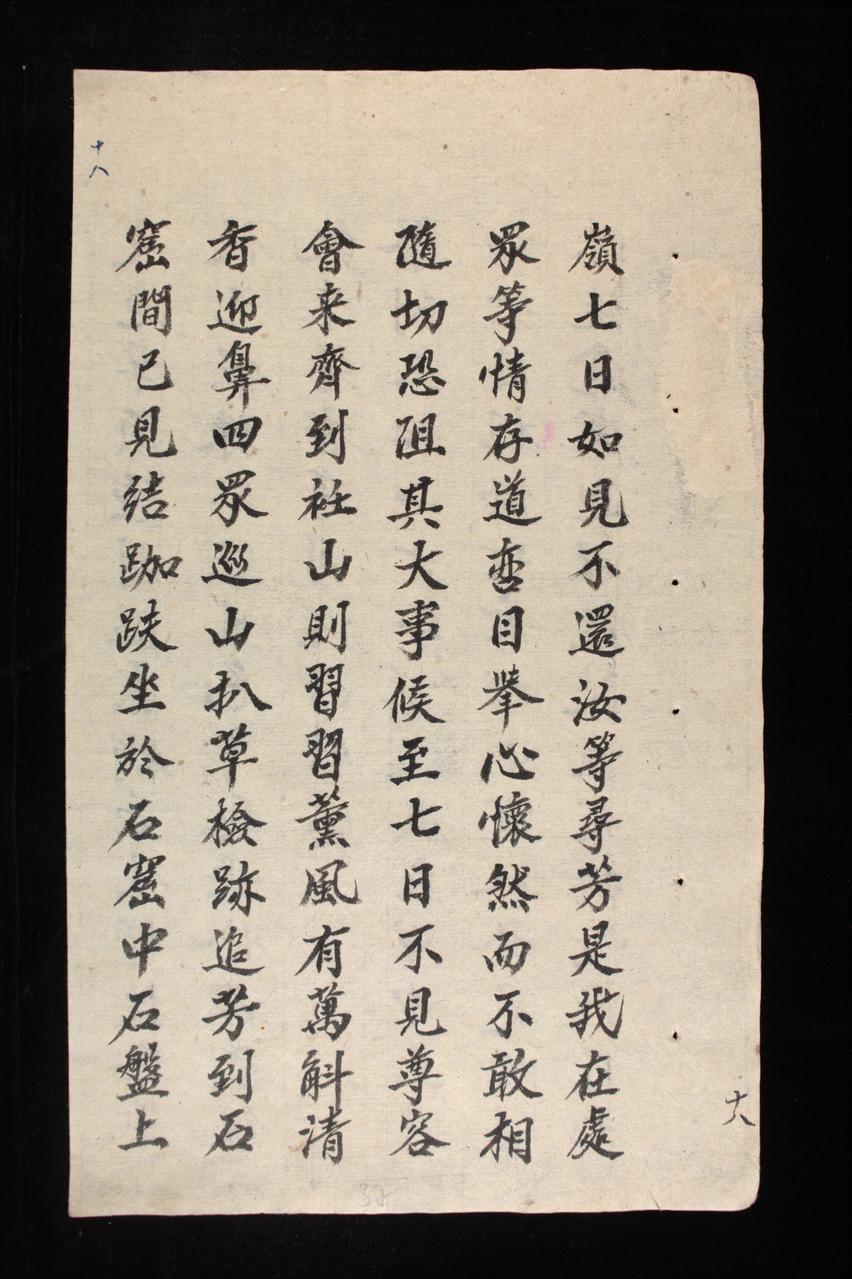 嶺七日如見不還汝等尋芳是我在處
眾等情存道峦目舉心懷然而不敢相
隨切恐阻其大事候至七日不見尊容
會来齊到社山則習習薰風有萬斛清
香迎鼻四眾巡山扒草檢跡追芳到石
窟間已見結跏趺坐於石窟中石盤上
十八
十八